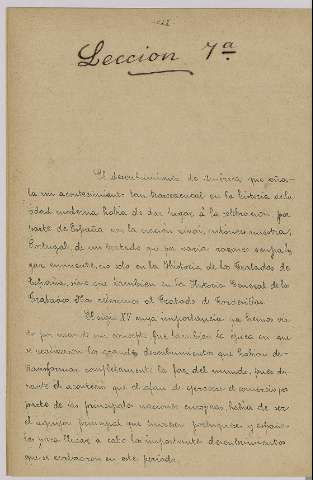 Leccion 7ª
El descubrimiento de América, que seña-
la un acontecimiento tan trascendental en la historia de la
edad moderna habia de dar lugar á la celebracion por
parte de España con la nacion vecina, entonces nuestra,
Portugal, de un tratado que por varias razones ocupa lu-
gar eminente, no solo en la Historia de los Tratados de
España, sino que tambien en la Historia General de los
Tratados. Nos referimos al Tratado de Tordesillas.
El siglo XV cuya importancia ya hemos vis-
to por mas de un concepto fue tambien la época en que
se realizaron los grandes descubrimientos que habian de
transformar completamente la faz del mundo, pues du-
rante el
que el afan de ejercer el comercio por
parte de las principales naciones europeas, habia de ser
el
principal que tuvieron portugueses y españo-
les para llevar a cabo los importantes descubrimientos
que se realizaron en este periodo.